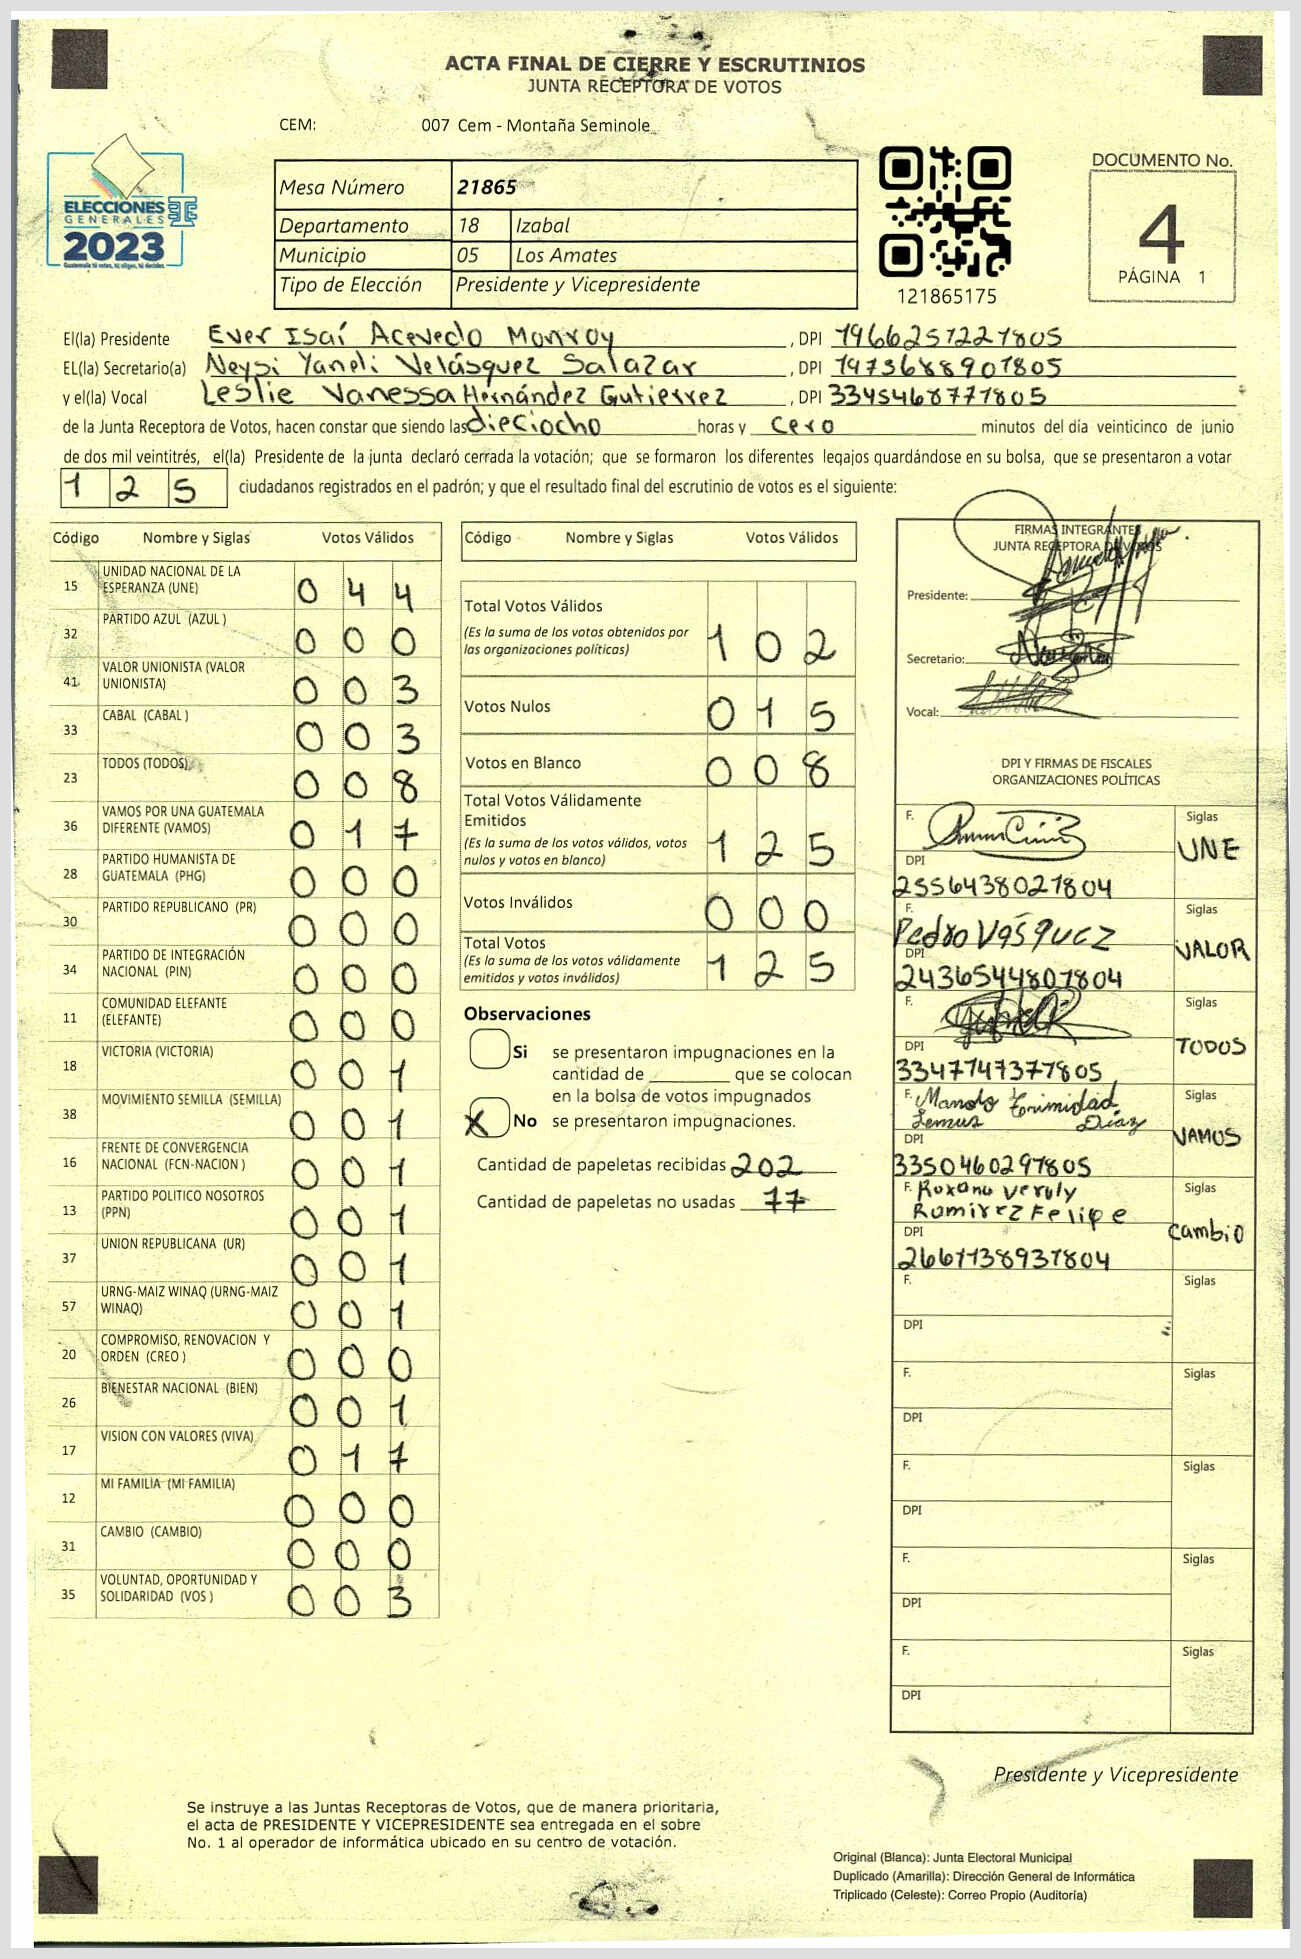 ACTA FINAL DE CIERRE Y ESCRUTINIOS
JUNTA RECEPTORA DE VOTOS
CEM: 007 Cem - Montaña Seminole
ELECCIONES
GENERALES
2023
Guatemala tú votas, tú eliges, tú decides
Mesa Número 21865
Departamento 18 Izabal
Municipio 05 Los Amates
Tipo de Elección Presidente y Vicepresidente
121865175
DOCUMENTO No.
4
PÁGINA 1
El(la) Presidente Ever Isaí Acevedo Monroy, DPI 1966251221805
EL(la) Secretario(a) Neysi Yaneli Velásquez Salazar, DPI 1973688901805
y el(la) Vocal Leslie Vanessa Hernández Gutierrez, DPI 3345468771805
de la Junta Receptora de Votos, hacen constar que siendo las dieciocho horas y cero minutos del día veinticinco de junio
de dos mil veintitrés, el(la) Presidente de la junta declaró cerrada la votación; que se formaron los diferentes legajos guardándose en su bolsa, que se presentaron a votar
125 ciudadanos registrados en el padrón; y que el resultado final del escrutinio de votos es el siguiente:
Código Nombre y Siglas Votos Válidos
15 UNIDAD NACIONAL DE LA ESPERANZA (UNE) 0 4 4
32 PARTIDO AZUL (AZUL ) 0 0 0
41 VALOR UNIONISTA (VALOR UNIONISTA) 0 0 3
33 CABAL (CABAL ) 0 0 3
23 TODOS (TODOS) 0 0 8
36 VAMOS POR UNA GUATEMALA DIFERENTE (VAMOS) 0 1 7
28 PARTIDO HUMANISTA DE GUATEMALA (PHG) 0 0 0
30 PARTIDO REPUBLICANO (PR) 0 0 0
34 PARTIDO DE INTEGRACIÓN NACIONAL (PIN) 0 0 0
11 COMUNIDAD ELEFANTE (ELEFANTE) 0 0 0
18 VICTORIA (VICTORIA) 0 0 1
38 MOVIMIENTO SEMILLA (SEMILLA) 0 0 1
16 FRENTE DE CONVERGENCIA NACIONAL (FCN-NACION ) 0 0 1
13 PARTIDO POLITICO NOSOTROS (PPN) 0 0 1
37 UNION REPUBLICANA (UR) 0 0 1
57 URNG-MAIZ WINAQ (URNG-MAIZ WINAQ) 0 0 1
20 COMPROMISO, RENOVACION Y ORDEN (CREO ) 0 0 0
26 BIENESTAR NACIONAL (BIEN) 0 0 1
17 VISION CON VALORES (VIVA) 0 1 7
12 MI FAMILIA (MI FAMILIA) 0 0 0
31 CAMBIO (CAMBIO) 0 0 0
35 VOLUNTAD, OPORTUNIDAD Y SOLIDARIDAD (VOS ) 0 0 3
Código Nombre y Siglas Votos Válidos
Total Votos Válidos
(Es la suma de los votos obtenidos por
las organizaciones políticas) 1 0 2
Votos Nulos 0 1 5
Votos en Blanco 0 0 8
Total Votos Válidamente
Emitidos
(Es la suma de los votos válidos, votos
nulos y votos en blanco) 1 2 5
Votos Inválidos 0 0 0
Total Votos
(Es la suma de los votos válidamente
emitidos y votos inválidos) 1 2 5
Observaciones
Si se presentaron impugnaciones en la
cantidad de ________ que se colocan
en la bolsa de votos impugnados
X No se presentaron impugnaciones.
Cantidad de papeletas recibidas 202
Cantidad de papeletas no usadas 77
FIRMAS INTEGRANTES
JUNTA RECEPTORA DE VOTOS
Presidente:
Secretario:
Vocal:
DPI Y FIRMAS DE FISCALES
ORGANIZACIONES POLÍTICAS
F. Siglas
UNE
DPI
2556438021804
F. Pedro Vásquez Siglas
VALOR
DPI
2436544801804
F. Siglas
TODOS
DPI
3347747371805
F. Manolo Trinidad Siglas
Lemus Díaz
VAMOS
DPI
3350460291805
F. Roxana Veruly Siglas
Ramirez Felipe
Cambio
DPI
2661138931804
F. Siglas
DPI
F. Siglas
DPI
F. Siglas
DPI
F. Siglas
DPI
F. Siglas
DPI
Presidente y Vicepresidente
Se instruye a las Juntas Receptoras de Votos, que de manera prioritaria,
el acta de PRESIDENTE Y VICEPRESIDENTE sea entregada en el sobre
No. 1 al operador de informática ubicado en su centro de votación.
Original (Blanca): Junta Electoral Municipal
Duplicado (Amarilla): Dirección General de Informática
Triplicado (Celeste): Correo Propio (Auditoría)